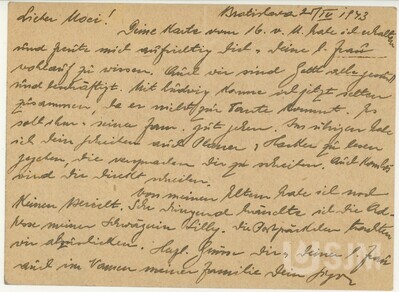 Bratislava 25/IV 1943
Lieber Moci!
Deine Karte vom 16. v. M. habe ich erhalten
und freute mich aufrichtig Dich u. Deine l. Frau
wohlauf zu wissen. Auch wir sind Gott sei gesund
und beschäftigt. Mit Ludwig komme ich jetzt selten
zusammen, da er nicht zur Tante kommt. Es
soll ihm u. seiner Fam. gut gehen. Im übrigen habe
ich Dein Schreiben auch u. zu lesen
gegeben, die versprachen Dir zu schreiben. Auch
wird Dir direkt schreiben.
Von meinen Eltern habe ich noch
keinen Bericht. Sehr dringend bräuchte ich die Ad-
resse meiner Schwägerin Lilly. Die Postpäckchen
wir abzuschicken. Herzl. Grüsse Dir u. Deiner l. Frau
auch im Namen meiner Familie Dein